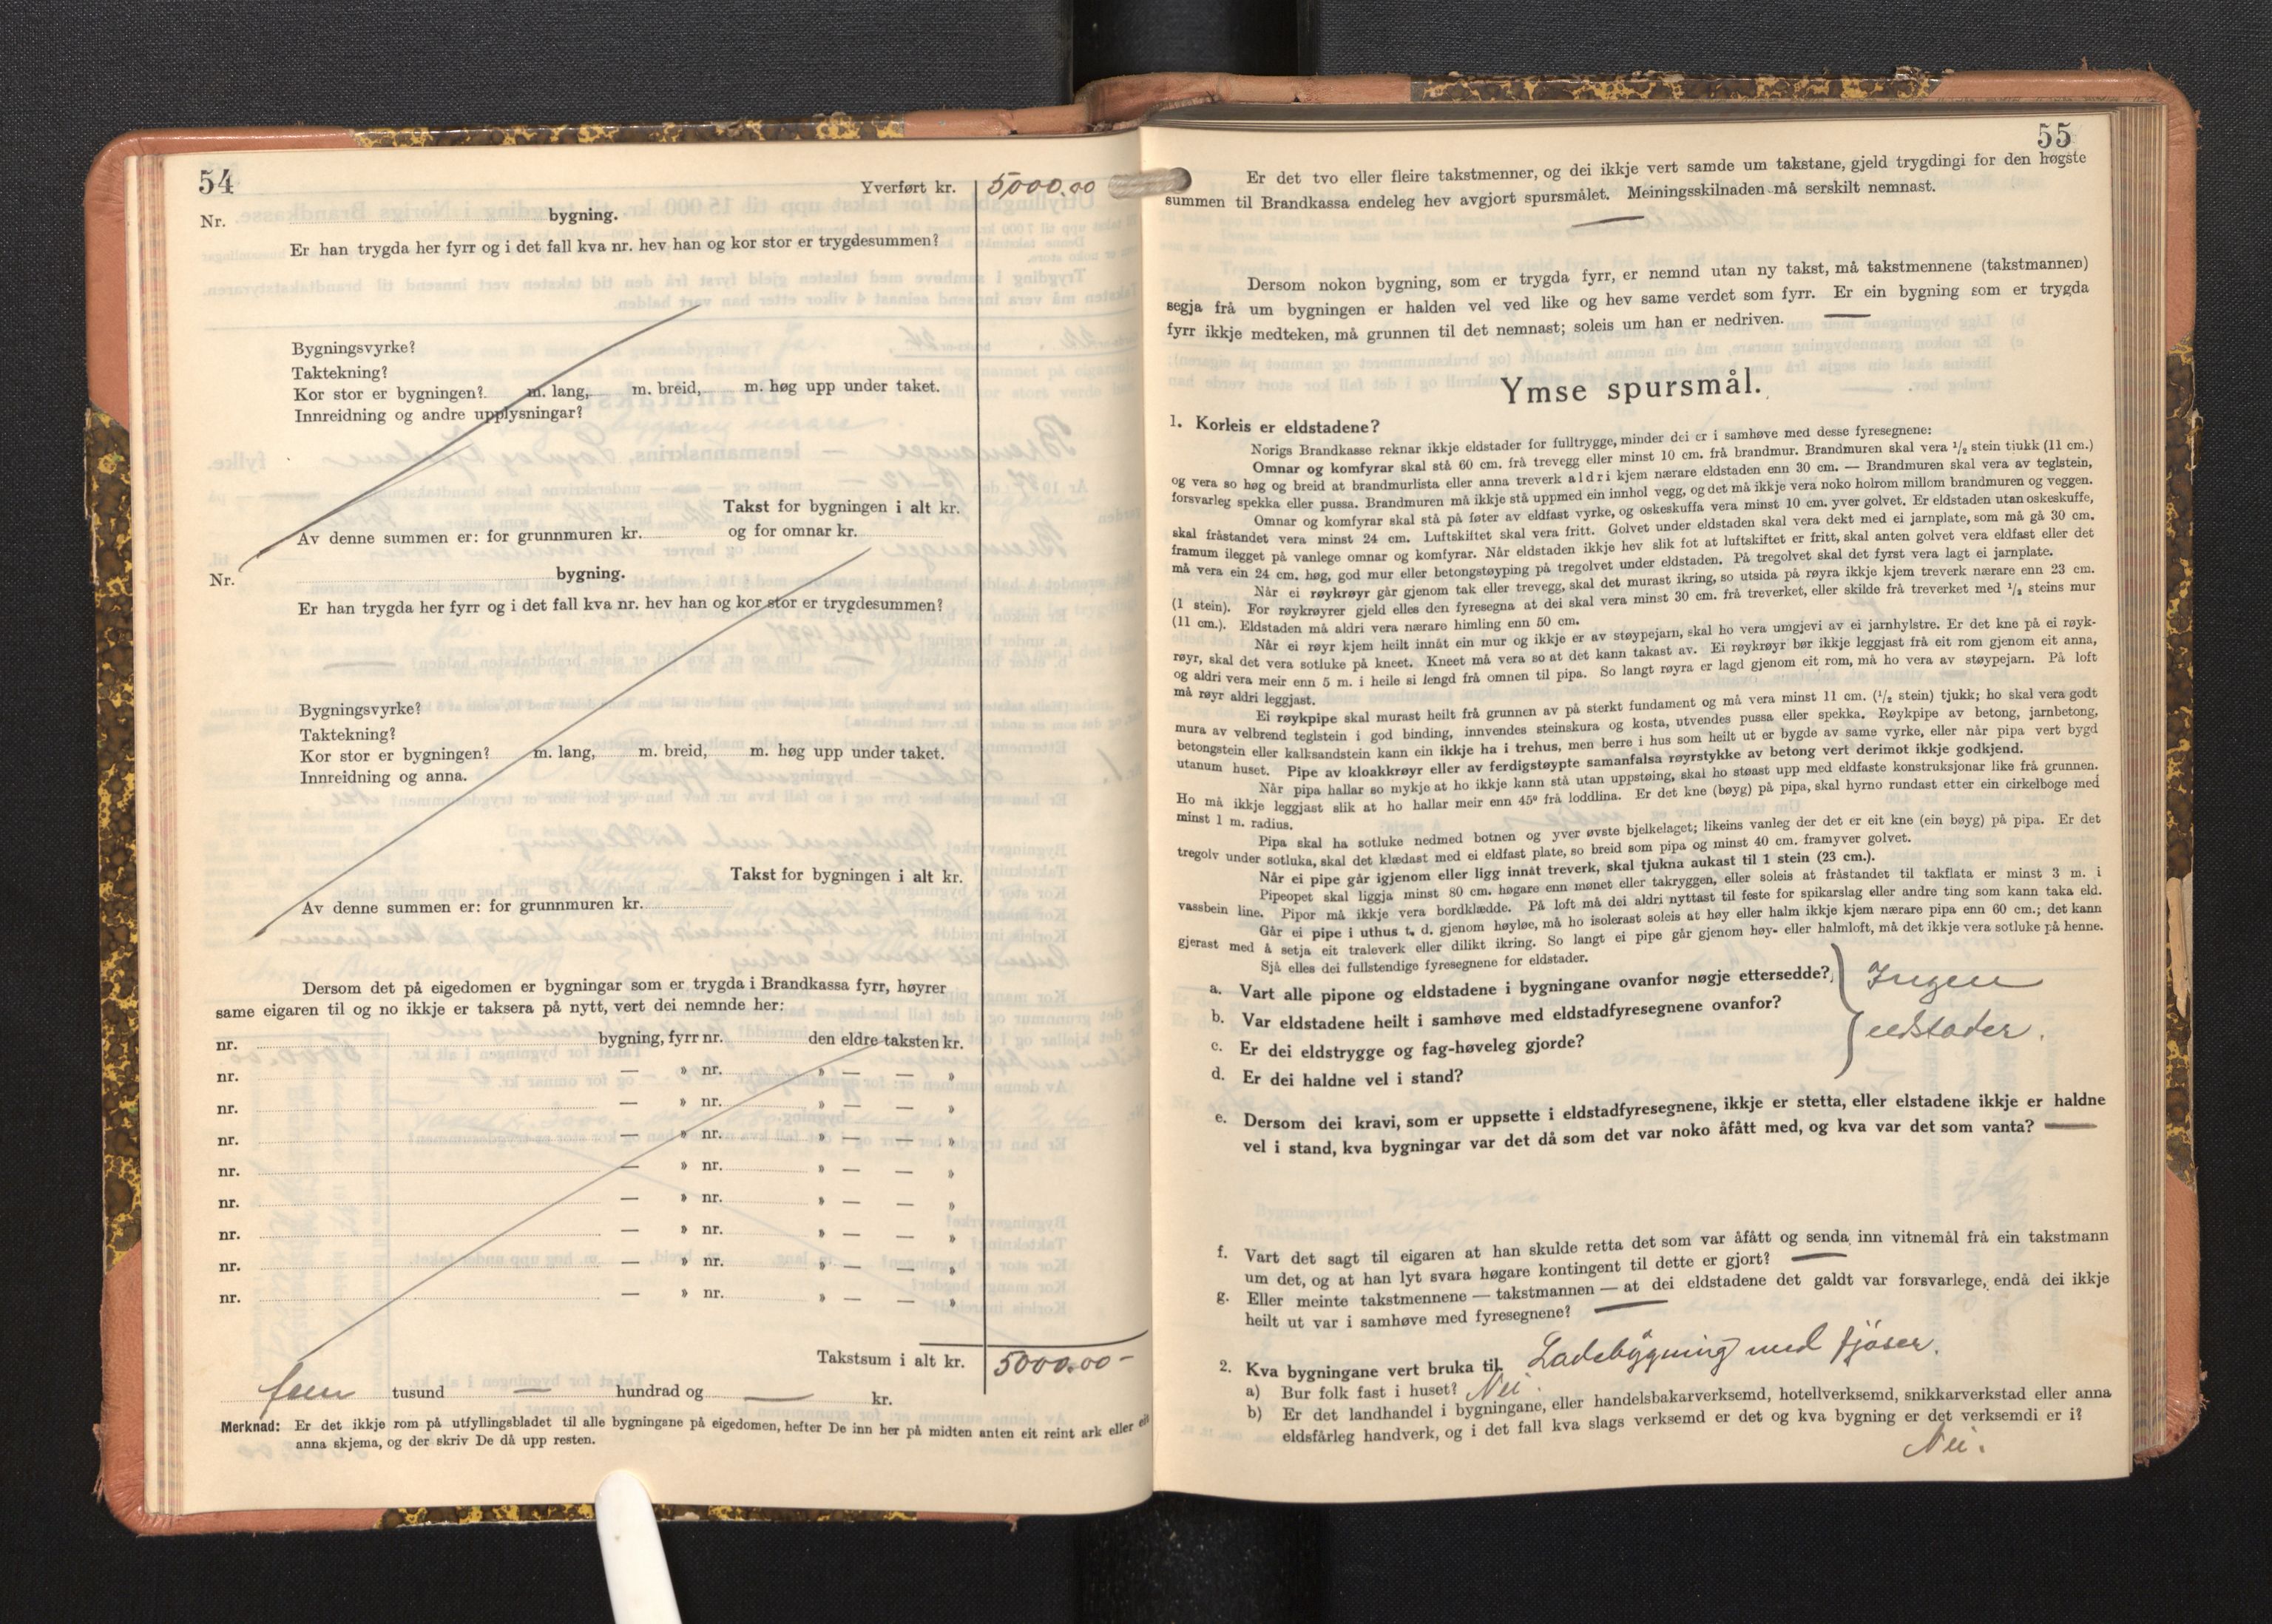 54
Yverført kr. 5000.00
Nr. bygning.
Er han trygda her fyrr og i det fall kva nr. hev han og kor stor er trygdesummen?
Bygningsvyrke?
Taktekning?
Kor stor er bygningen? m. lang, m. breid, m. høg upp under taket.
Innreidning og andre upplysningar?
Takst for bygningen i alt kr.
Av denne summen er: for grunnmuren kr. og for omnar kr.
Nr. bygning.
Er han trygda her fyrr og i det fall kva nr. hev han og kor stor er trygdesummen?
Bygningsvyrke?
Taktekning?
Kor stor er bygningen? m. lang, m. breid, m. høg upp under taket.
Innreidning og anna.
Takst for bygningen i alt kr.
Av denne summen er: for grunnmuren kr.
Dersom det på eigedomen er bygningar som er trygda i Brandkassa fyrr, høyrer
same eigaren til og no ikkje er taksera på nytt, vert dei nemnde her:
nr. bygning, fyrr nr. den eldre taksten kr.
nr. — » nr. » — — »
nr. — » nr. » — — »
nr. — » nr. » — — »
nr. — » nr. » — — »
nr. — » nr. » — — »
nr. — » nr. » — — »
nr. — » nr. » — — »
nr. — » nr. » — — »
Takstsum i alt kr. 5000.00 -
fem tusund — hundrad og — kr.
Merknad: Er det ikkje rom på utfyllingsbladet til alle bygningane på eigedomen, hefter De inn her på midten anten eit reint ark eller eit
anna skjema, og der skriv De då upp resten.
55
Er det tvo eller fleire takstmenner, og dei ikkje vert samde um takstane, gjeld trygdingi for den høgste
summen til Brandkassa endeleg hev avgjort spursmålet. Meiningsskilnaden må serskilt nemnast.
—
Dersom nokon bygning, som er trygda fyrr, er nemnd utan ny takst, må takstmennene (takstmannen)
segja frå um bygningen er halden vel ved like og hev same verdet som fyrr. Er ein bygning som er trygda
fyrr ikkje medteken, må grunnen til det nemnast; soleis um han er nedriven. —
Ymse spursmål.
1. Korleis er eldstadene?
Norigs Brandkasse reknar ikkje eldstader for fulltrygge, minder dei er i samhøve med desse fyresegnene:
Omnar og komfyrar skal stå 60 cm. frå trevegg eller minst 10 cm. frå brandmur. Brandmuren skal vera ½ stein tjukk (11 cm.)
og vera so høg og breid at brandmurlista eller anna treverk aldri kjem nærare eldstaden enn 30 cm. — Brandmuren skal vera av teglstein,
forsvarleg spekka eller pussa. Brandmuren må ikkje stå uppmed ein innhol vegg, og det må ikkje vera noko holrom millom brandmuren og veggen.
Omnar og komfyrar skal stå på føter av eldfast vyrke, og oskeskuffa vera minst 10 cm. yver golvet. Er eldstaden utan oskeskuffe,
skal fråstandet vera minst 24 cm. Luftskiftet skal vera fritt. Golvet under eldstaden skal vera dekt med ei jarnplate, som må gå 30 cm.
framum ilegget på vanlege omnar og komfyrar. Når eldstaden ikkje hev slik fot at luftskiftet er fritt, skal anten golvet vera eldfast eller det
må vera ein 24 cm. høg, god mur eller betongstøyping på tregolvet under eldstaden. På tregolvet skal det fyrst vera lagt ei jarnplate.
Når ei røykrøyr går gjenom tak eller trevegg, skal det murast ikring, so utsida på røyra ikkje kjem treverk nærare enn 23 cm.
(1 stein). For røykrøyrer gjeld elles den fyresegna at dei skal vera minst 30 cm. frå treverket, eller skilde frå treverket med ½ steins mur
(11 cm.). Eldstaden må aldri vera nærare himling enn 50 cm.
Når ei røyr kjem heilt innåt ein mur og ikkje er av støypejarn, skal ho vera umgjevi av ei jarnhylstre. Er det kne på ei røyk-
røyr, skal det vera sotluke på kneet. Kneet må vera so at det kann takast av. Ei røykrøyr bør ikkje leggjast frå eit rom gjenom eit anna,
og aldri vera meir enn 5 m. i heile si lengd frå omnen til pipa. So langt røyra er lagd gjenom eit rom, må ho vera av støypejarn. På loft
må røyr aldri leggjast.
Ei røykpipe skal murast heilt frå grunnen av på sterkt fundament og må vera minst 11 cm. (½ stein) tjukk; ho skal vera godt
mura av velbrend teglstein i god binding, innvendes steinskura og kosta, utvendes pussa eller spekka. Røykpipe av betong, jarnbetong,
betongstein eller kalksandstein kann ein ikkje ha i trehus, men berre i hus som heilt ut er bygde av same vyrke, eller når pipa vert bygd
utanum huset. Pipe av kloakkrøyr eller av ferdigstøypte samanfalsa røyrstykke av betong vert derimot ikkje godkjend.
Når pipa hallar so mykje at ho ikkje kann stå utan uppstøing, skal ho støast upp med eldfaste konstruksjonar like frå grunnen.
Ho må ikkje leggjast slik at ho hallar meir enn 45° frå loddlina. Er det kne (bøyg) på pipa, skal hyrno rundast etter ein cirkelboge med
minst 1 m. radius.
Pipa skal ha sotluke nedmed botnen og yver øvste bjelkelaget; likeins vanleg der det er eit kne (ein bøyg) på pipa. Er det
tregolv under sotluka, skal det klædast med ei eldfast plate, so breid som pipa og minst 40 cm. framyver golvet.
Når ei pipe går igjenom eller ligg innåt treverk, skal tjukna aukast til 1 stein (23 cm.).
Pipeopet skal liggja minst 80 cm. høgare enn mønet eller takryggen, eller soleis at fråstandet til takflata er minst 3 m. i
vassbein line. Pipor må ikkje vera bordklædde. På loft må dei aldri nyttast til feste for spikarslag eller andre ting som kann taka eld.
Går ei pipe i uthus t. d. gjenom høyløe, må ho isolerast soleis at høy eller halm ikkje kjem nærare pipa enn 60 cm.; det kann
gjerast med å setja eit traleverk eller dilikt ikring. So langt ei pipe går gjenom høy- eller halmloft, må det ikkje vera sotluke på henne.
Sjå elles dei fullstendige fyresegnene for eldstader.
a. Vart alle pipone og eldstadene i bygningane ovanfor nøgje ettersedde?
b. Var eldstadene heilt i samhøve med eldstadfyresegnene ovanfor?
c. Er dei eldstrygge og fag-høveleg gjorde?
d. Er dei haldne vel i stand?
Ingen
eldstader.
e. Dersom dei kravi, som er uppsette i eldstadfyresegnene, ikkje er stetta, eller elstadene ikkje er haldne
vel i stand, kva bygningar var det då som det var noko åfått med, og kva var det som vanta? —
f. Vart det sagt til eigaren at han skulde retta det som var åfått og senda inn vitnemål frå ein takstmann
um det, og at han lyt svara høgare kontingent til dette er gjort? —
g. Eller meinte takstmennene — takstmannen — at dei eldstadene det galdt var forsvarlege, endå dei ikkje
heilt ut var i samhøve med fyresegnene? —
2. Kva bygningane vert bruka til. Ladebygning med fjøser.
a) Bur folk fast i huset? Nei.
b) Er det landhandel i bygningane, eller handelsbakarverksemd, hotellverksemd, snikkarverkstad eller anna
eldsfårleg handverk, og i det fall kva slags verksemd er det og kva bygning er det verksemdi er i?
Nei.